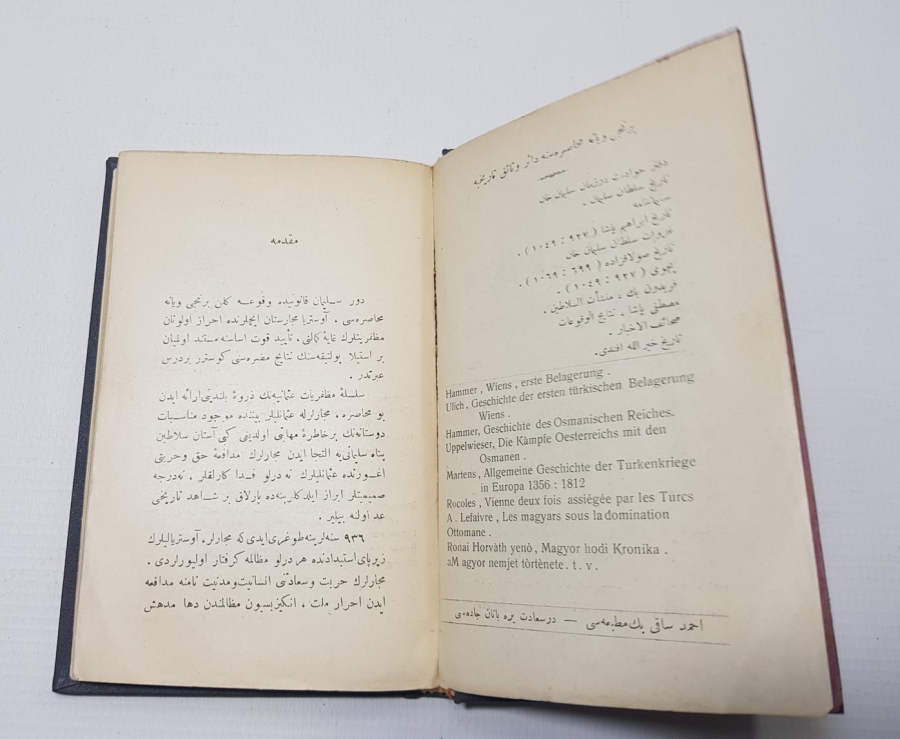 برنجی ویانه محاصره‌سنه دائر وثائق تاریخیه
دفتر حوادث دورتان سلیمان خان
تاریخ سلطان سلیمان .
سلیماننامه
تاریخ ابراهیم پاشا ( ٩٣٧ : ١٠٤٩ ) .
غزوات سلطان سلیمان خان
تاریخ صولاقزاده ( ٦٩٩ : ١٠٦٩ ) .
پچوی ( ٩٢٧ : ١٠٤٩ ) .
فریدون بك ، منشأت السلاطین .
مصطفی پاشا ، نتایج الوقوعات
صحائف الاخبار .
تاریخ خیر الله افندی .
Hammer , Wiens , erste Belagerung .
Ulich, Geschichte der ersten türkischen Belagerung
Wiens .
Hammer, Geschichte des Osmanischen Reiches.
Uppelwieser, Die Kämpfe Oesterreichs mit den
Osmanen .
Martens , Allgemeine Geschichte der Turkenkriege
in Europa 1356 : 1812
Rocoles , Vienne deux fois assiégée par les Turcs
A . Lefaivre , Les magyars sous la domination
Ottomane .
Ronai Horvàth yenò , Magyor hodi Kronika .
aM agyor nemjet törtènete . t . v .
احمد ساقی بك مطبعه‌سی — درسعادت بره باتان جاده‌سی
مقدمه
دور سلیمان قانونیده وقوعه کلن برنجی ویانه
محاصره‌سی . آوستریا مجارستان ایچلرنده احراز اولونان
مظفریتلرك غایهٔ کمالنی . تأیید قوت اساسنه مستند اولمیان
بر استیلا پولتیقه‌سنك نتایج مضره‌سنی کوسترر بردرس
عبرتدر .
سلسلهٔ مظفریات عثمانیه‌نك ذروهٔ بلندینی ارائه ایدن
بو محاصره ، مجارلرله عثمانلیلر بیننده موجود مناسبات
دوستانه‌نك بر خاطرهٔ مهابتی اولدیغی کبی آستان سلاطین
پناه سلیمانی‌یه التجا ایدن مجارلرك مدافعهٔ حق وحریتی
اغورنده عثمانلیلرك نه درلو فداکارلقلر ، نه درجه
صمیمیتلر ابراز ایلدکلرینه‌ده پارلاق بر شاهد تاریخی
عد اولنه بیلیر .
٩٣٦ سنه‌لرینه طوغری ایدی که مجارلر ، آوستریالیلرك
زیرپای استبدادنده هر درلو مظالمه گرفتار اولیورلردی .
مجارلرك حریت وسعادتنی انسانیت ومدنیت نامنه مدافعه
ایدن احرار ملت ، انکیزیسیون مظالمندن دها مدهش